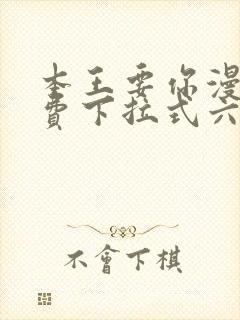 本王要你漫
費下拉式六
不會下棋